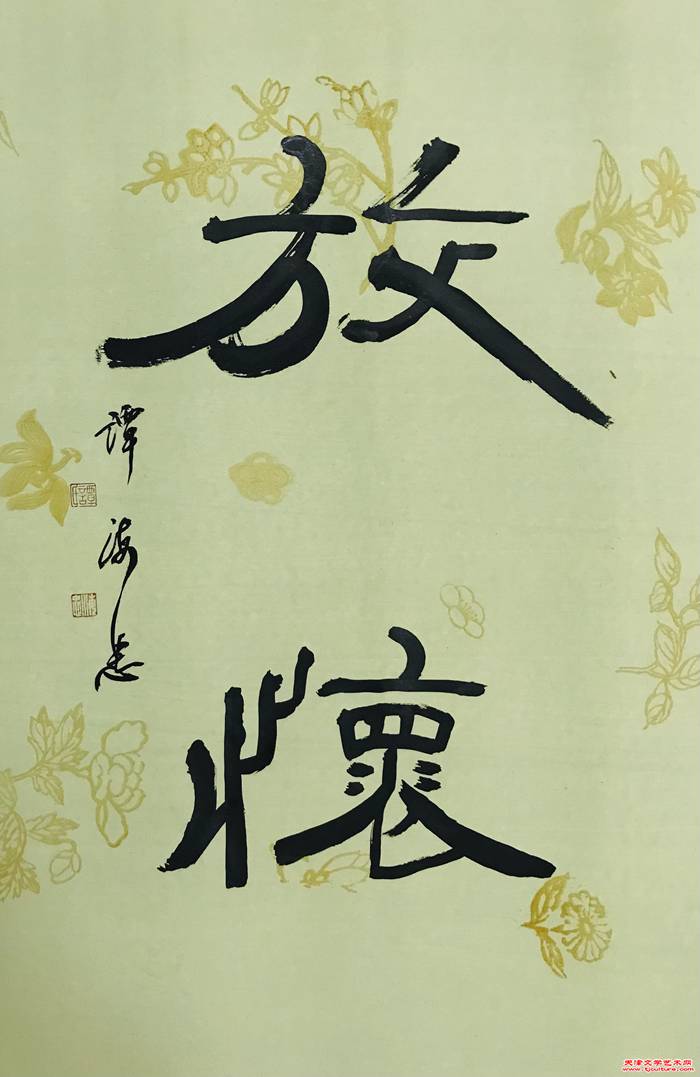 放懷
譚海志
天津文学艺术网
www.tjculture.com